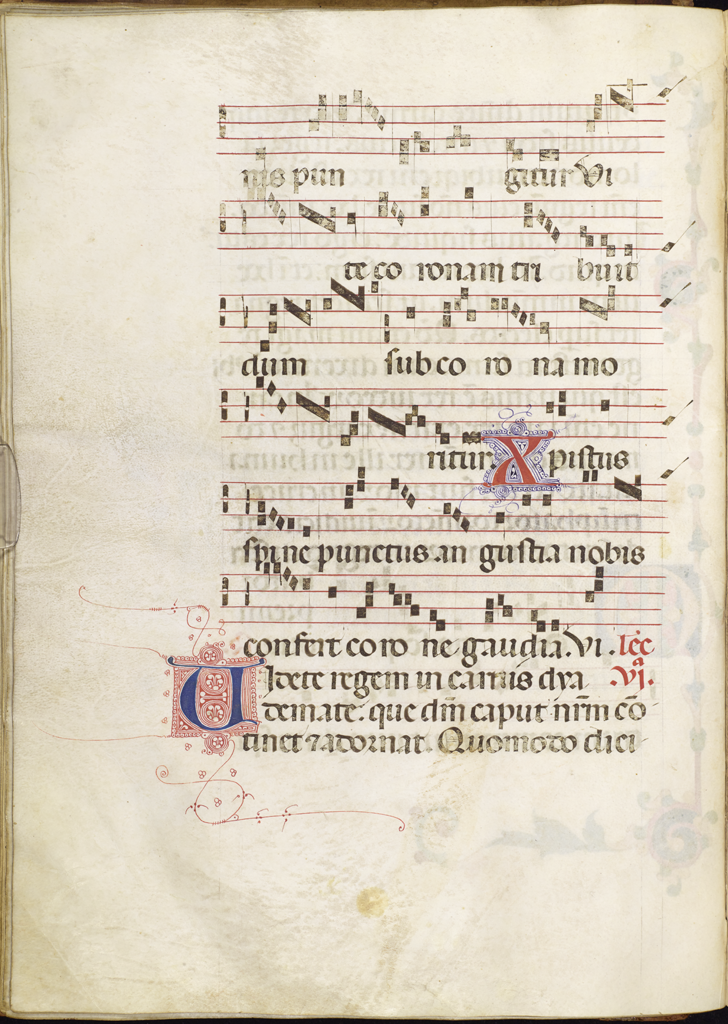 nis pun gitur Vi
te co ronam tri buit
dum sub co ro na mo
ritur. Xpistus
spine punctus an gustia nobis
confert co ro ne gaudia. Vi. lec
Uidete regem in carnis dya VIa.
demate. que dm̄ caput nr̄m cō
tinet ⁊ adornat. Quomodo dici